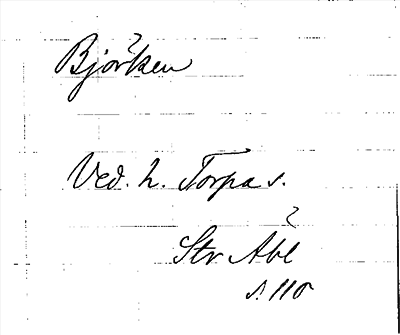 Björken
Ved. h. Torpa s.
?
Str Åbl
s. 110